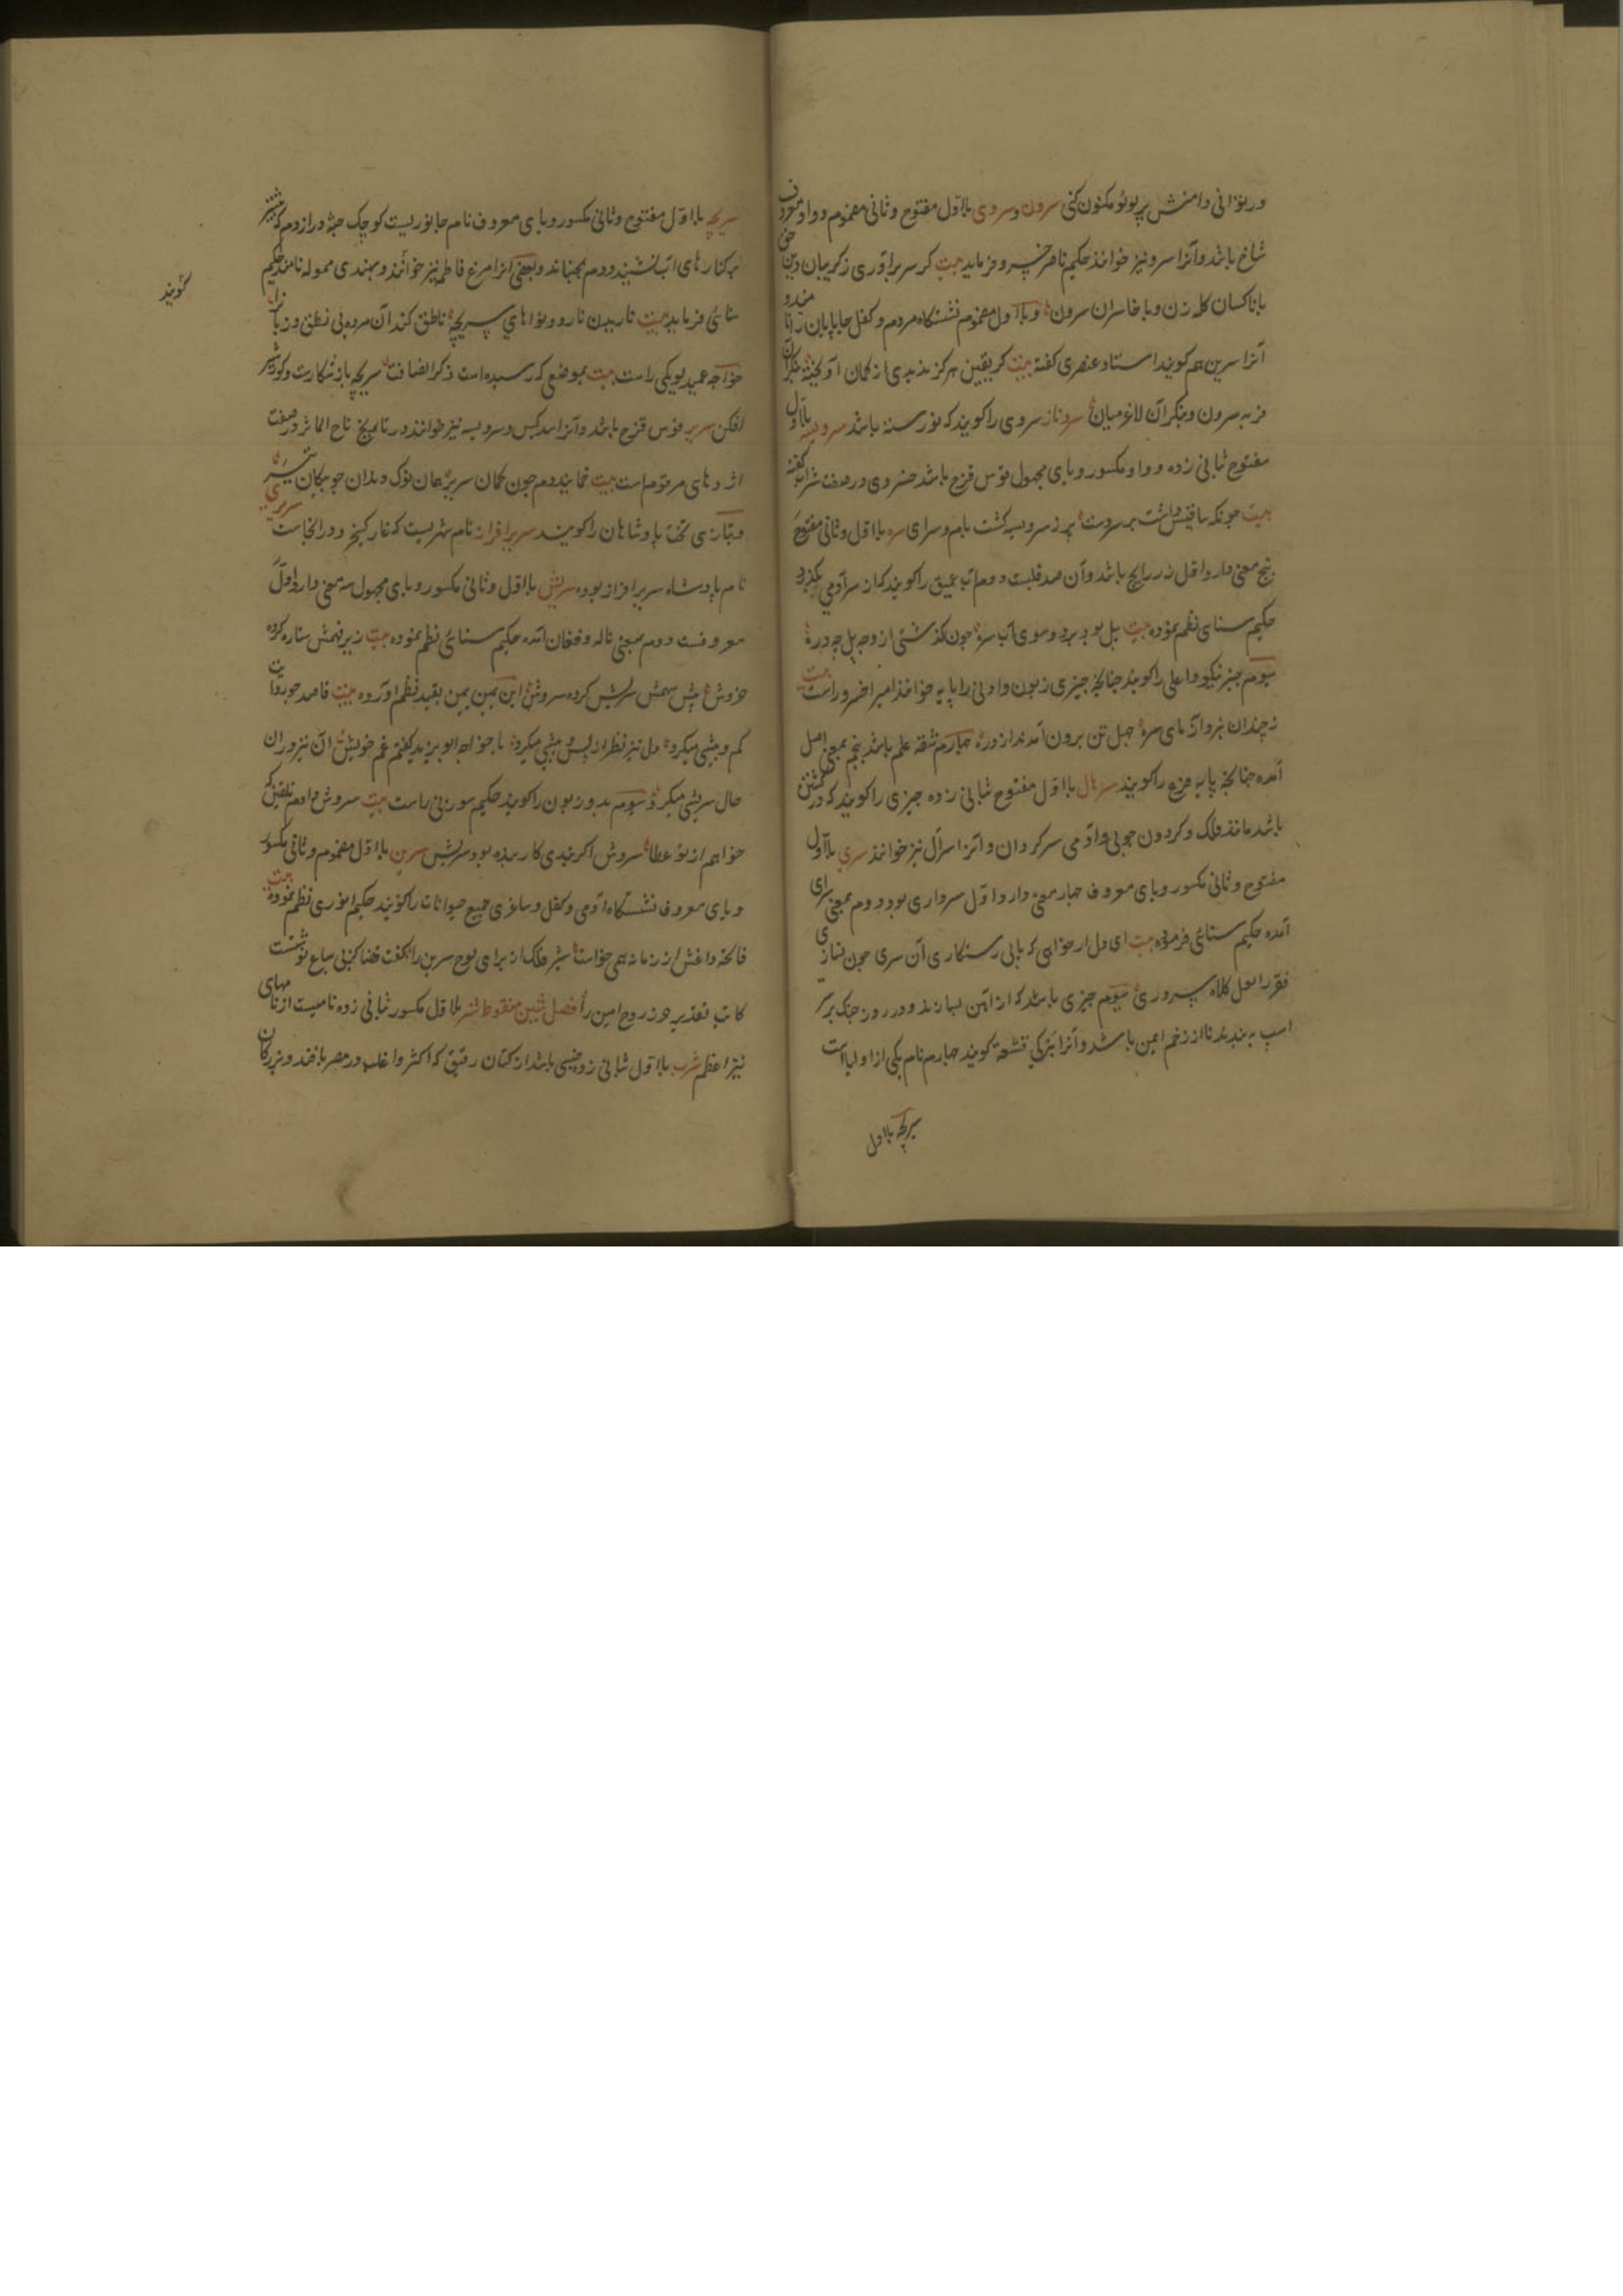 وربوانی دامنش پر لولو مکنون کنی سرون و سروی با اول مفتوح و ثانی مضموم و واو معروف
شاخ باشد و آنرا سرو نیز خوانند حکیم ناصر خسرو فرماید بیت کر سر براوری ز کریبان دین حق
با ناکسان کله زن و با خاسران سرون و با اول مضموم نشستکاه مردم و کفل چارپایان را نامند و
آنرا سرین هم کویند استاد عنصری کفته بیت کر یقین هرکز ندیدی از کمان آویخته بنکر آن
فربه سرون و بنکر آن لاغر میان سروناز سروی را کویند که نورسته باشد سرویسه با اول
مفتوح ثانی زده و واو مکسور و یای مجهول قوس قزح باشد خسروی در صفت شراب کفته
بیت چونکه ساقیش داشت بر سر دست پر ز سرویسه کشت بام و سرای سره با اول و ثانی مفتوح
پنج معنی دارد اول زر رایج باشد و آن ضد قلبست دوم آب عمیق را کویند که از سر آدمی بکذرد
حکیم سنای نظم نموده بیت پل بود برد و سوی آب سره چون کذشتی از و چه پل چه دره
سیوم چیز نیکو و اعلی را کویند چنانچه چیزی زبون و ادنی را پایه خوانند امیر خسرو راست بیت
ز چندان بروازه‌ای سره چهل تن برون آمدند از دره چهارم شقه علم باشد پنجم بمعنی اصل
آمده چنانچه پایه فرع را کویند سریال با اول مفتوح ثانی زده چیزی را کویند که در کشتن
باشد مانند فلک و کردون چوبی و آدمی سرکردان و آنرا سرآل نیز خوانند سری با اول
مفتوح و ثانی مکسور و یای معروف چهار معنی دارد اول سرداری بود دوم بمعنی سرای
آمده حکیم سنائی فرموده بیت ای دل ار خواهی که یابی رستکاری آن سری چون نسازی
فقر را نعل کلاه سروری سیوم چیزی باشد که از آهن بسازند و در روز جنک بر سر
اسپ به بندند تا از زخم ایمن باشد و آنرا بترکی قشقه کویند چهارم نام یکی از اولیا است
سریچه با اول
سریچه با اول مفتوح و ثانی مکسور و یای معروف نام جانوریست کوچک جثه و دراز دم که بیشتر
بر کنارهای آب نشیند و دم بجنباند و بعضی آنرا مرغ فاطمه نیز خوانند و بهندی مموله نامند حکیم
سنائی فرماید بیت نا ریدن نارو و نواهای سریچه ناطق کند آن مرده بی نطق و زبانرا
خواجه عمید لویکی راست بیت بموضعی که رسیده است ذکر انصافت سریچه باز شکارست و کور شیر
افکن سریر قوس قزح باشد و آنرا سدکیس و سرویسه نیز خوانند و در تاریخ تاج المآثر در صفت
اژدهای مرقوم است بیت نماینده دم چون کمان سریر همان نوک دندان چو پیکان تیر
و بتازی تخت پادشاهان را کویند سریر افراز نام شهریست که غار کیخسرو در انجاست سریری
نام پادشاه سریر افراز بوده سریش با اول و ثانی مکسور و یای مجهول سه معنی دارد اول
معروفست دوم بمعنی ناله و فغان آمده حکیم سنائی نظم نموده بیت زیر نهمش ستاره کرده
خروش پیش سهمش سریش کرده سروش ابن یمین بقید نظم آورده بیت قاصد چو روایت
کم و بیشی میکرد دل نیز نظر از پس و پیشی میکرد با خواجه ابو یزید کفتم غم خویش آن نیز در آن
حال سریشی میکرد سیوم بد و زبون را کویند حکیم سوزنی راست بیت سروش و آدم تلقین که
خواهم از تو عطا سروش اکر نبدی کار بنده بود سریش سرین با اول مضموم و ثانی مکسور
و یای معروف نشستکاه آدمی و کفل و ساغری جمیع حیوانات را کویند حکیم انوری نظم نموده بیت
فاخته داغش از زمانه همی خواست شیر فلک از برای لوح سرین را کفت قضا کزنی سباع نوشتست
کاتب تقدیر حرز روح امین را فصل شین منقوطه شر با اول مکسور ثانی زده نامیست از نامهای
نیر اعظم شرب با اول ثانی زده جنسی باشد از کتان رقیق که اکثر و اغلب در مصر بافند و بزرکان
کویند